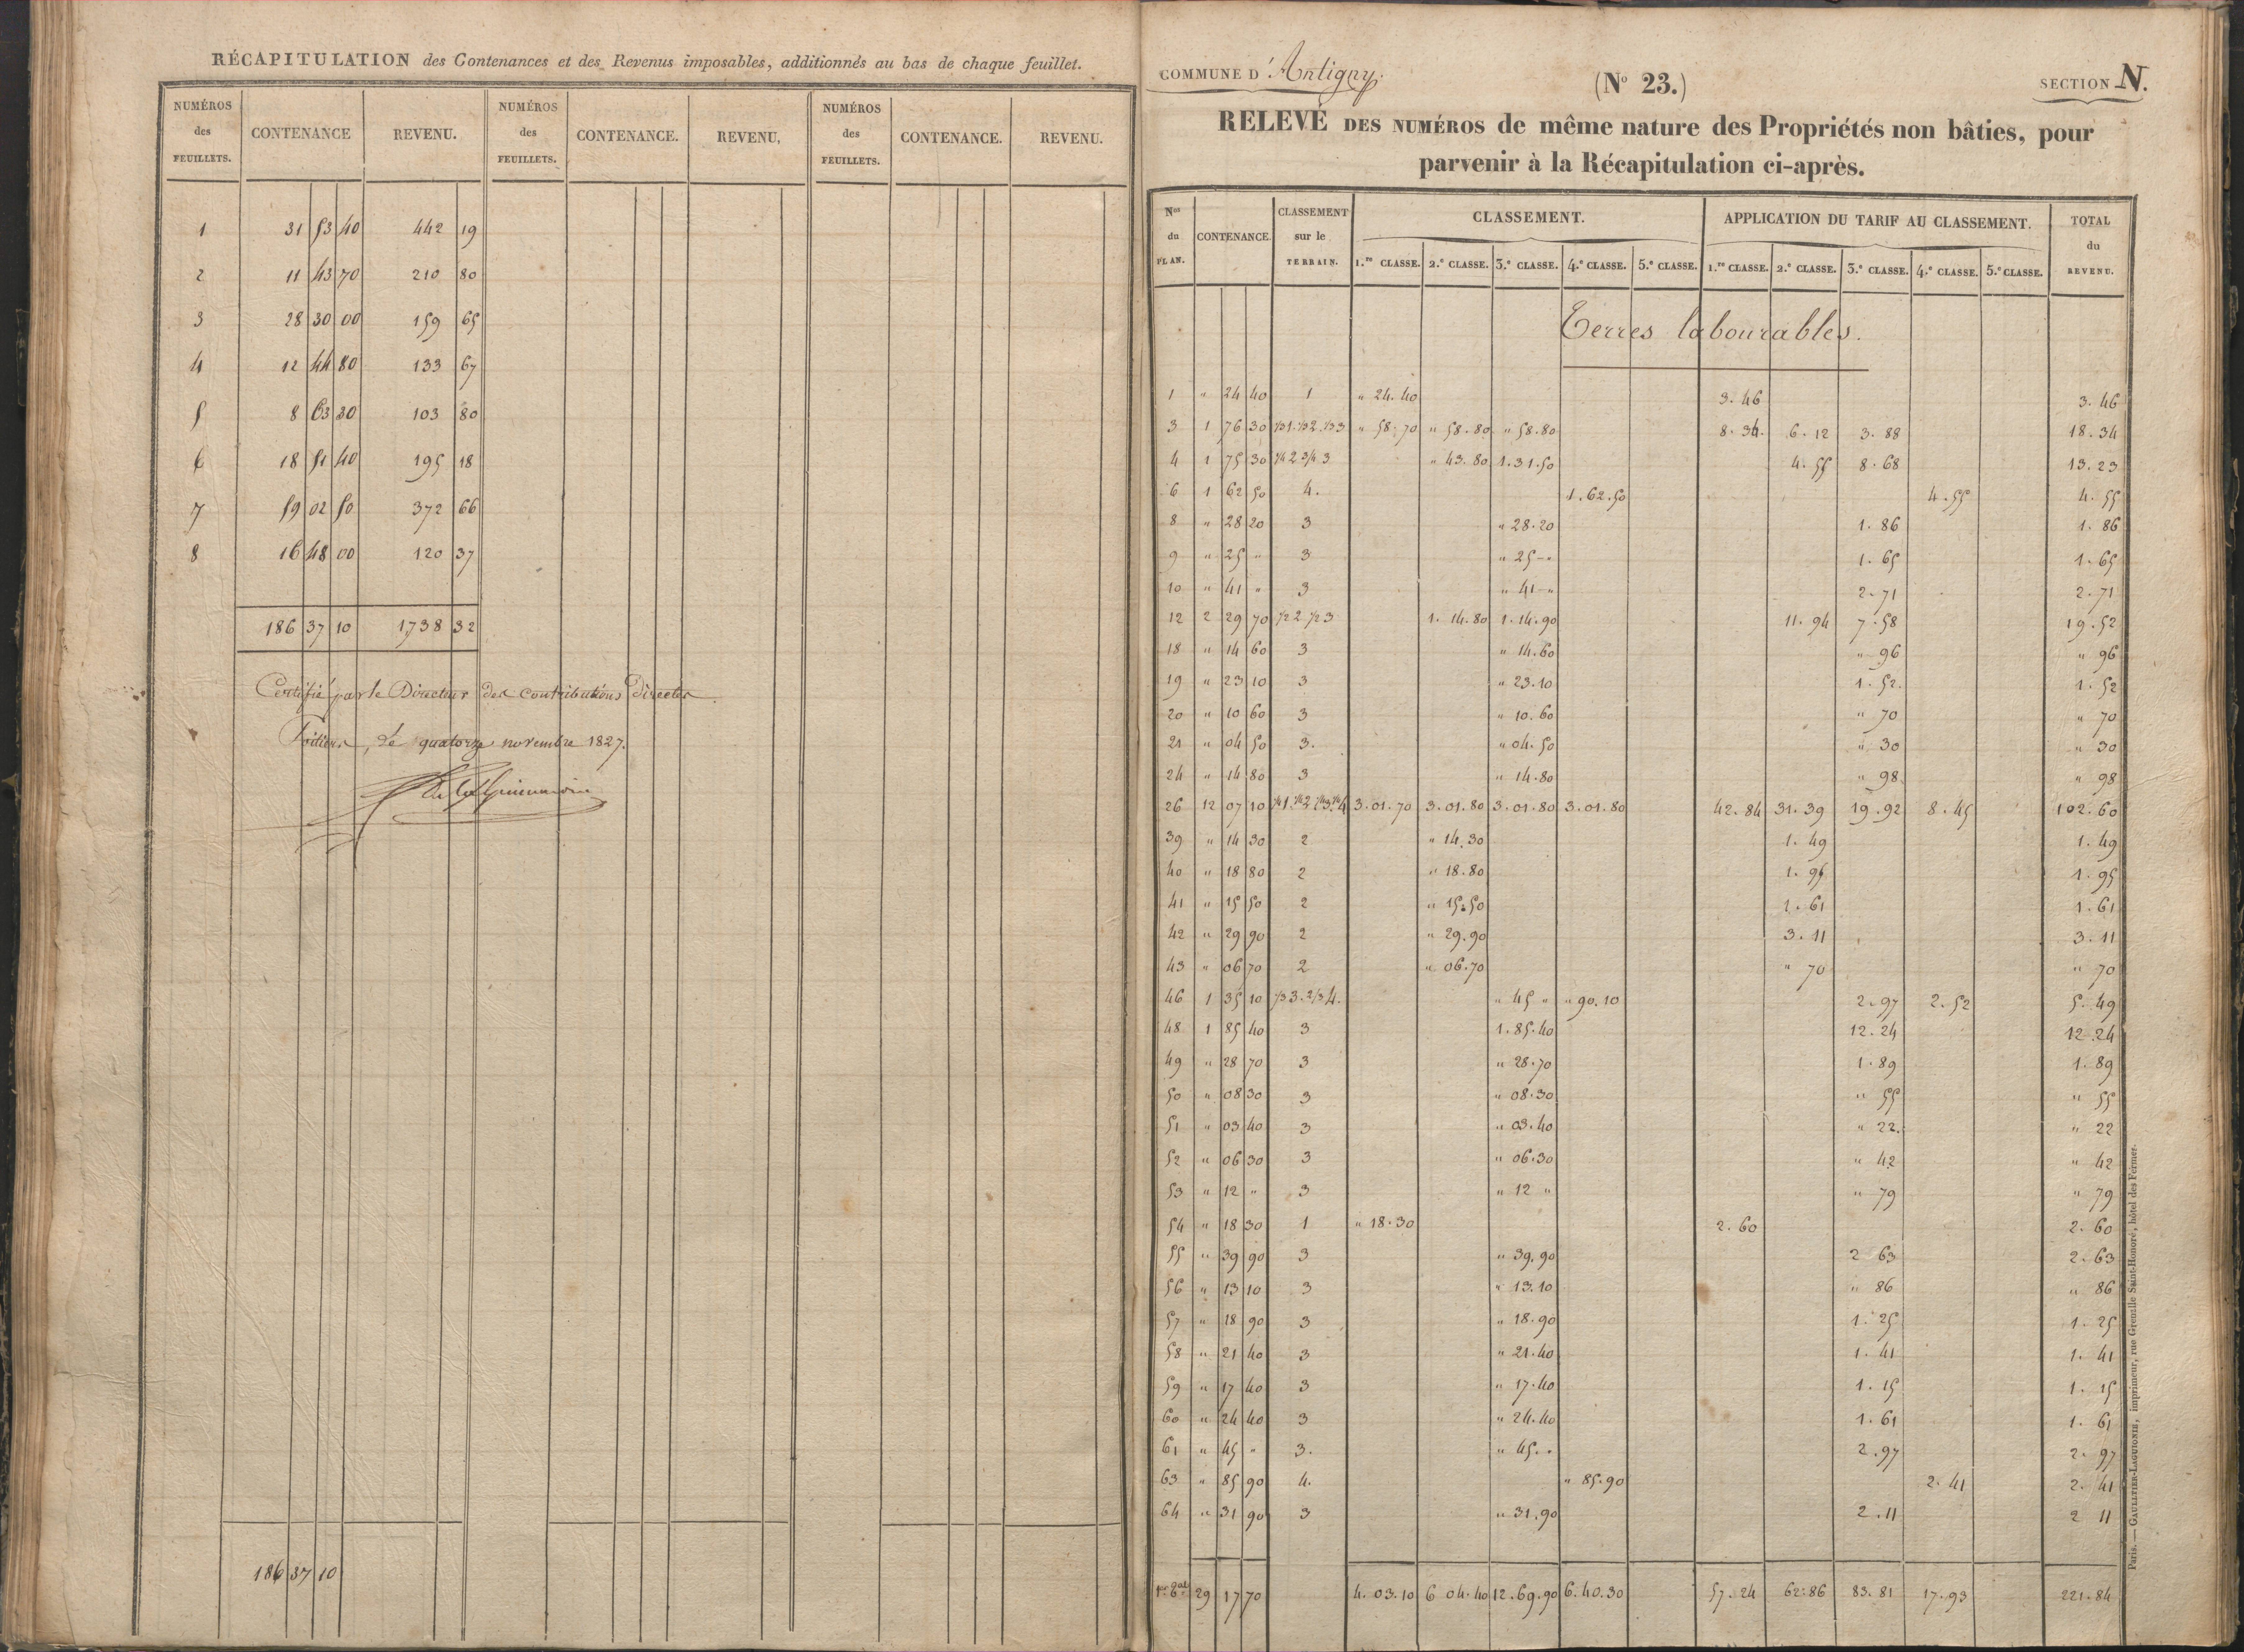 RÉCAPITULATION des Contenances et des Revenus imposables, additionnés au bas de chaque feuillet.
NUMÉROS des FEUILLETS. CONTENANCE REVENU. NUMÉROS des FEUILLETS. CONTENANCE. REVENU, NUMÉROS des FEUILLETS. CONTENANCE. REVENU.
1 31 53 40 442 19
2 11 43 70 210 80
3 28 30 00 159 65
4 12 44 80 133 67
5 8 63 30 103 80
6 18 51 40 195 18
7 59 02 50 372 66
8 16 48 00 120 37
186 37 10 1738 32
Certifié par le Directeur des contributions directes
Poitiers, le quatorze novembre 1827.
186 37 10
COMMUNE D'Antigny.
(No 23.)
SECTION N.
RELEVÉ DES NUMÉROS de même nature des Propriétés non bâties, pour
parvenir à la Récapitulation ci-après.
Nos du PLAN. CONTENANCE. CLASSEMENT sur le TERRAIN. CLASSEMENT. APPLICATION DU TARIF AU CLASSEMENT. TOTAL du REVENU.
1.re CLASSE. 2.e CLASSE. 3.e CLASSE. 4.e CLASSE. 5.e CLASSE. 1.re CLASSE. 2.e CLASSE. 3.e CLASSE. 4.e CLASSE. 5.e CLASSE.
Terres labourables.
1 " 24 40 1 " 24.40 3.46 3.46
3 1 76 30 1/3 1. 1/3 2. 1/3 3 " 58.70 " 58.80 " 58.80 8.34. 6.12 3.88 18.34
4 1 75 30 1/4 2 3/4 3 " 43.80 1.31.50 4.55 8.68 13.23
6 1 62 50 4. 1.62.50 4.55 4.55
8 " 28 20 3 " 28.20 1.86 1.86
9 " 25 " 3 " 25 - " 1.65 1.65
10 " 41 " 3 " 41 - " 2.71 2.71
12 2 29 70 1/2 2 1/2 3 1.14.80 1.14.90 11.94 7.58 19.52
18 " 14 60 3 " 14.60 " 96 " 96
19 " 23 10 3 " 23.10 1.52. 1.52
20 " 10 60 3 " 10.60 " 70 " 70
21 " 04 50 3. " 04.50 " 30 " 30
24 " 14 80 3 " 14.80 " 98 " 98
26 12 07 10 1/4 1. 1/4 2. 1/4 3. 1/4 4 3.01.70 3.01.80 3.01.80 3.01.80 42.84 31.39 19.92 8.45 102.60
39 " 14 30 2 " 14.30 1.49 1.49
40 " 18 80 2 " 18.80 1.95 1.95
41 " 15 50 2 " 15.50 1.61 1.61
42 " 29 90 2 " 29.90 3.11 3.11
43 " 06 70 2 " 06.70 " 70 " 70
46 1 35 10 1/3 3. 2/3 4. " 45 " " 90.10 2.97 2.52 5.49
48 1 85 40 3 1.85.40 12.24 12.24
49 " 28 70 3 " 28.70 1.89 1.89
50 " 08 30 3 " 08.30 " 55 " 55
51 " 03 40 3 " 03.40 " 22. " 22
52 " 06 30 3 " 06.30 " 42 " 42
53 " 12 " 3 " 12 " " 79 " 79
54 " 18 30 1 " 18.30 2.60 2.60
55 " 39 90 3 " 39.90 2 63 2.63
56 " 13 10 3 " 13.10 " 86 " 86
57 " 18 90 3 " 18.90 1.25 1.25
58 " 21 40 3 " 21.40 1.41 1.41
59 " 17 40 3 " 17.40 1.15 1.15
60 " 24 40 3 " 24.40 1.61 1.61
61 " 45 " 3. " 45.. 2.97 2.97
63 " 85 90 4. " 85.90 2.41 2.41
64 " 31 90 3 " 31.90 2.11 2 11
29 17 70 4.03.10 6 04.40 12.69.90 6.40.30 57.24 62.86 83.81 17.93 221.84
Paris. — GAULTIER-LAGUIONIE, imprimeur, rue Grenelle Saint-Honoré, hôtel des Fermes.